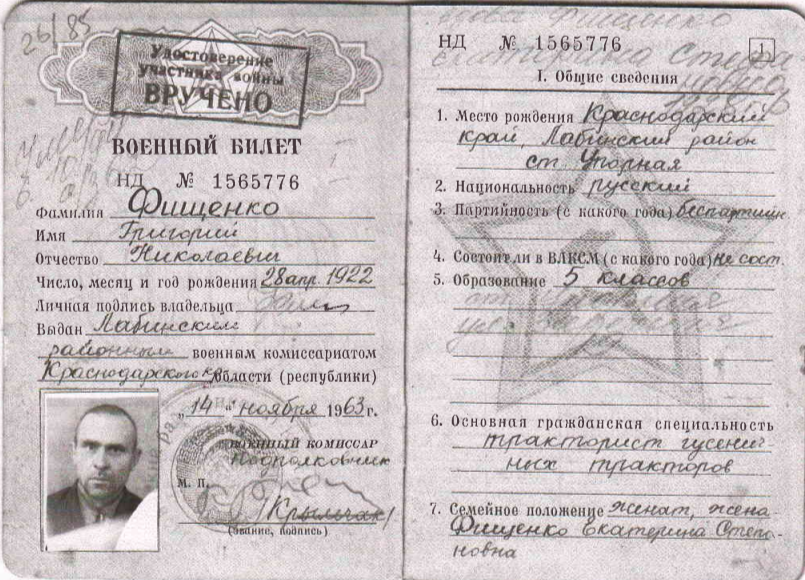 26/85
Удостоверение
участника войны
ВРУЧЕНО
ВОЕННЫЙ БИЛЕТ
НД № 1565776
Фамилия Фищенко
Имя Григорий
Отчество Николаевич
Число, месяц и год рождения 28 апр. 1922
Личная подпись владельца
Выдан Лабинским
районным военным комиссариатом
Краснодарского кр. области (республики)
„14“ ноября 1963 г.
ВОЕННЫЙ КОМИССАР
подполковник
М. П.
/Крыльчак/
(звание, подпись)
Фищенко
Екатерина Степа
НД № 1565776
1
I. Общие сведения
1. Место рождения Краснодарский
край, Лабинский район
ст. Упорная
2. Национальность русский
3. Партийность (с какого года) беспартийн.
4. Состоял ли в ВЛКСМ (с какого года) не сост.
5. Образование 5 классов
6. Основная гражданская специальность
тракторист гусенич
ных тракторов
7. Семейное положение женат, жена
Фищенко Екатерина Степа-
новна